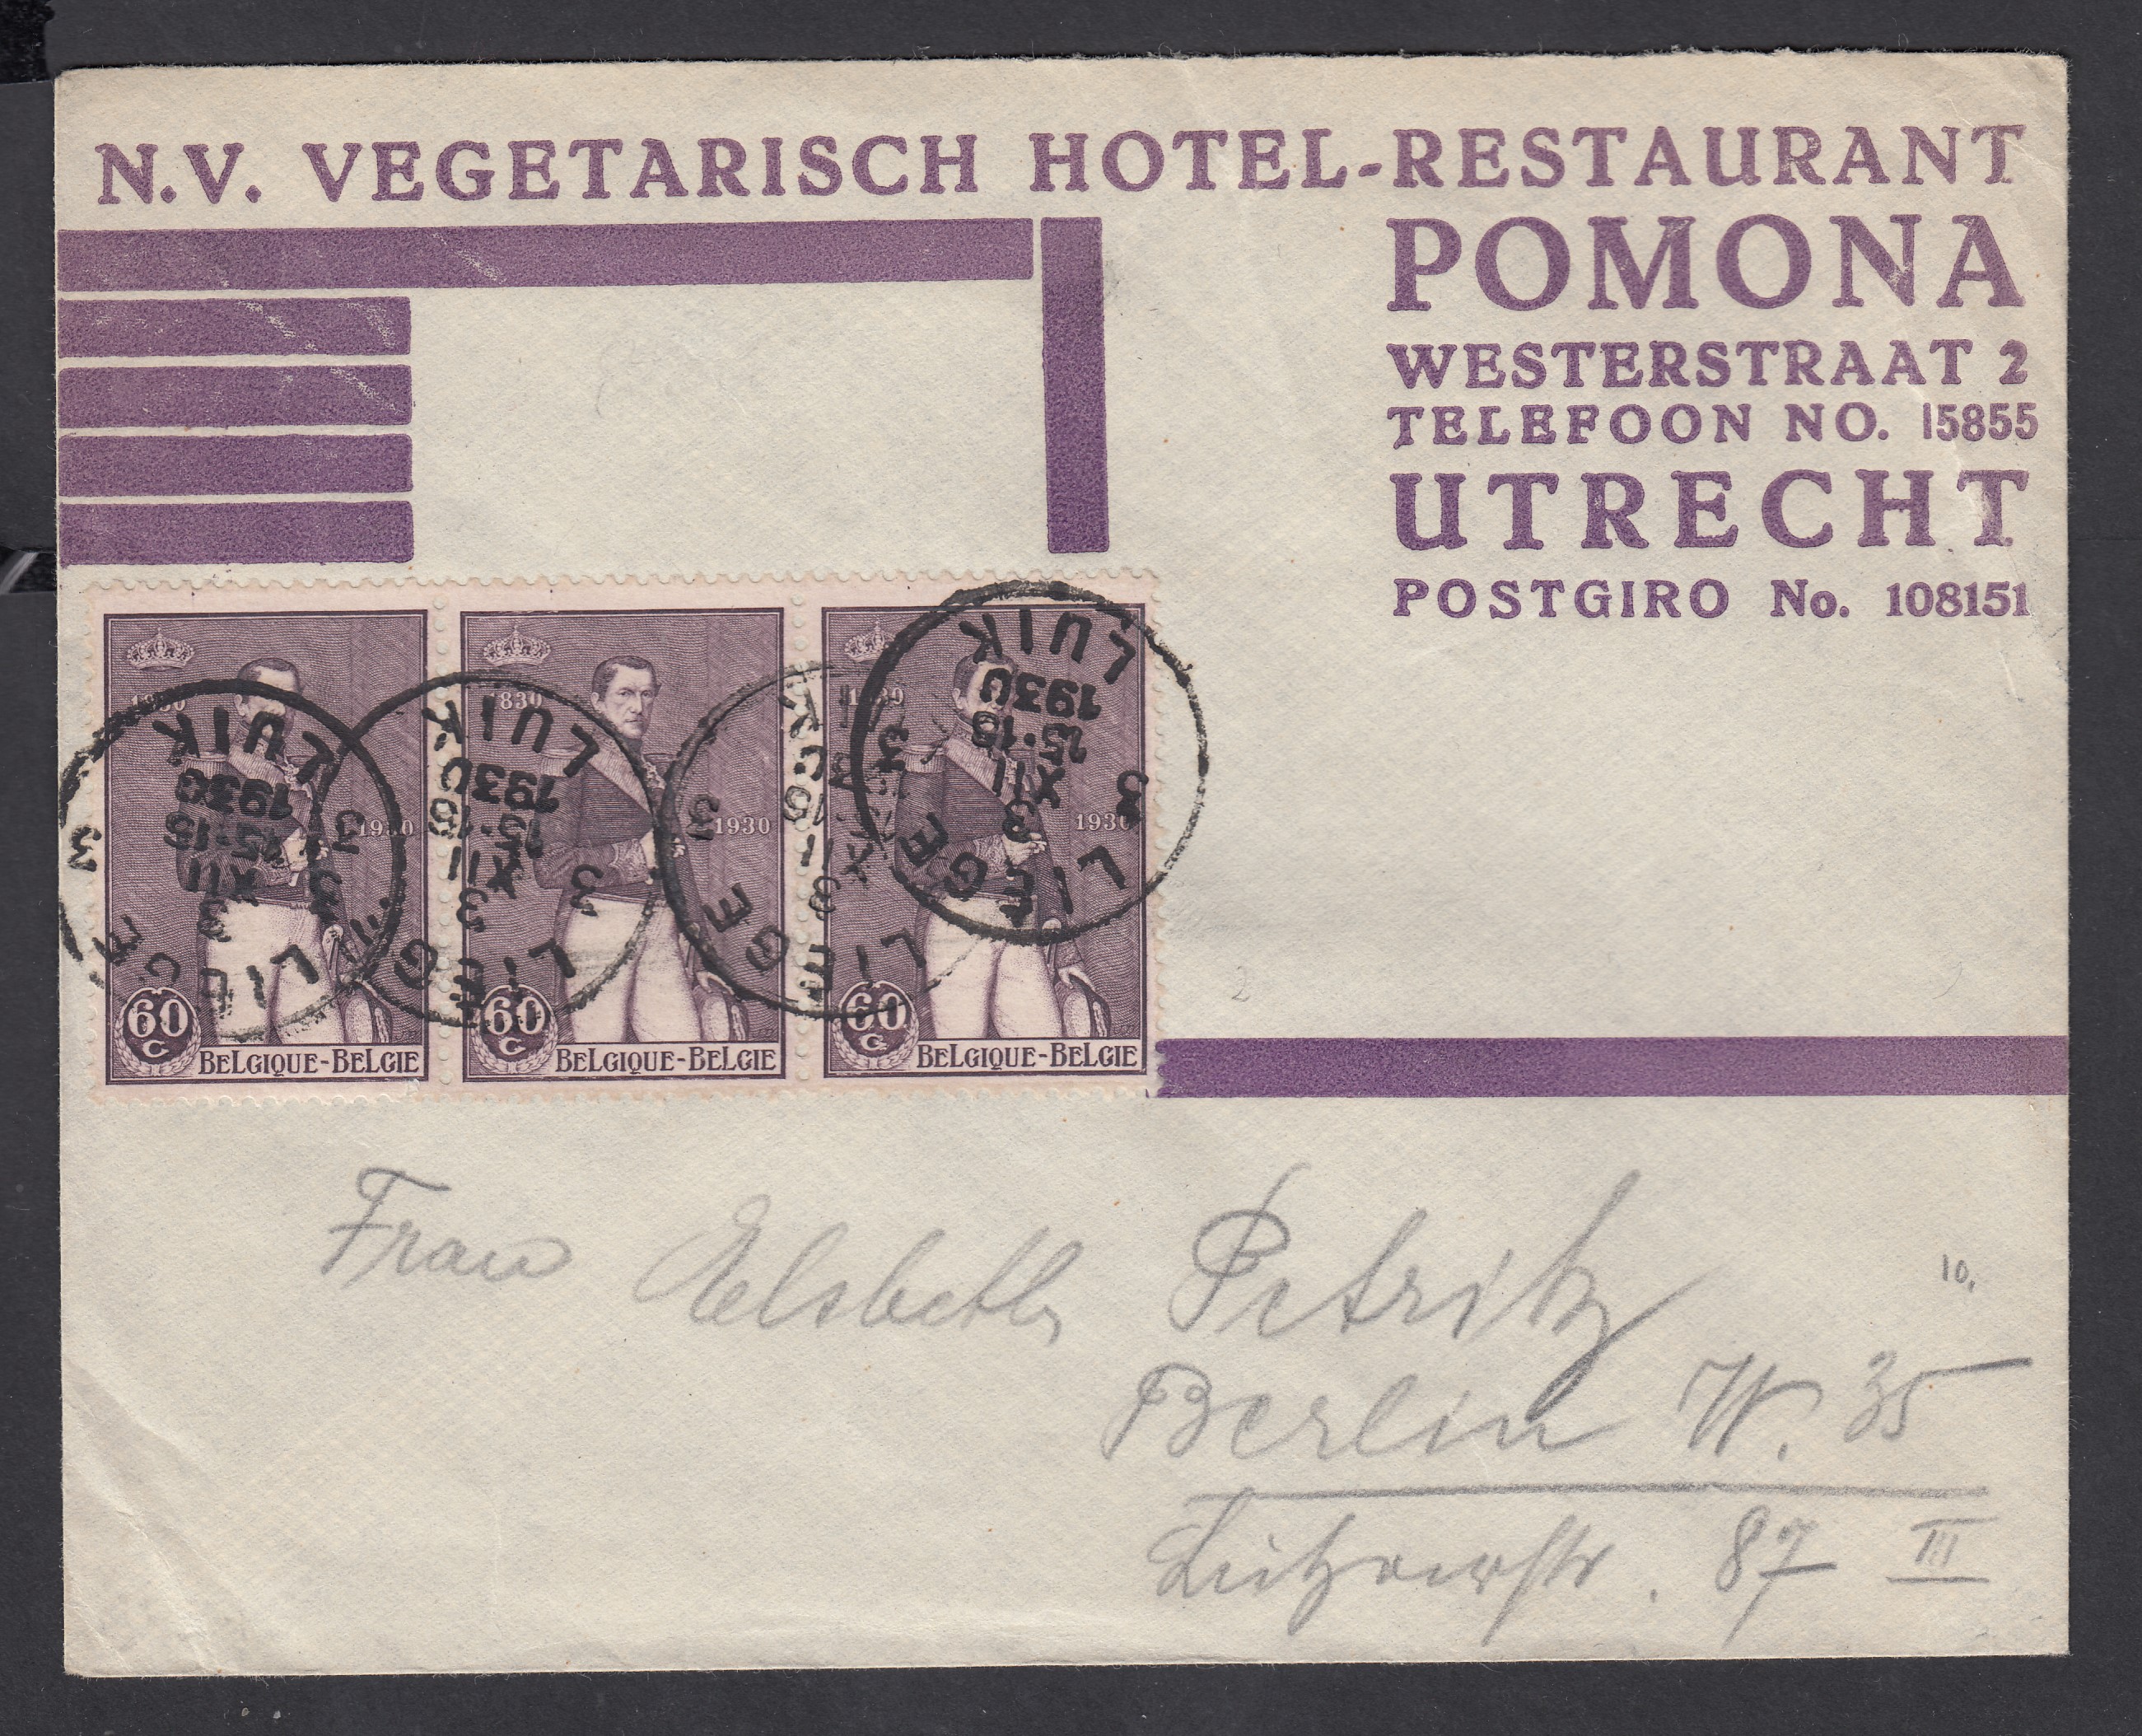 N.V. VEGETARISCH HOTEL-RESTAURANT
POMONA
WESTERSTRAAT 2
TELEFOON NO. 15855
UTRECHT
POSTGIRO No. 108151
1830
1930
60 C
BELGIQUE-BELGIE
1830
1930
60 C
BELGIQUE-BELGIE
1830
1930
60 C
BELGIQUE-BELGIE
LIEGE 3 3 XII 15-16 1930 LUIK 3
LIEGE 3 3 XII 15-16 1930 LUIK 3
LIEGE 3 3 XII
LIEGE 3 3 XII 15-16 1930 LUIK 3
2
Frau Elsbeth Petritz
10.
Berlin W. 35
Lützowstr. 87 III